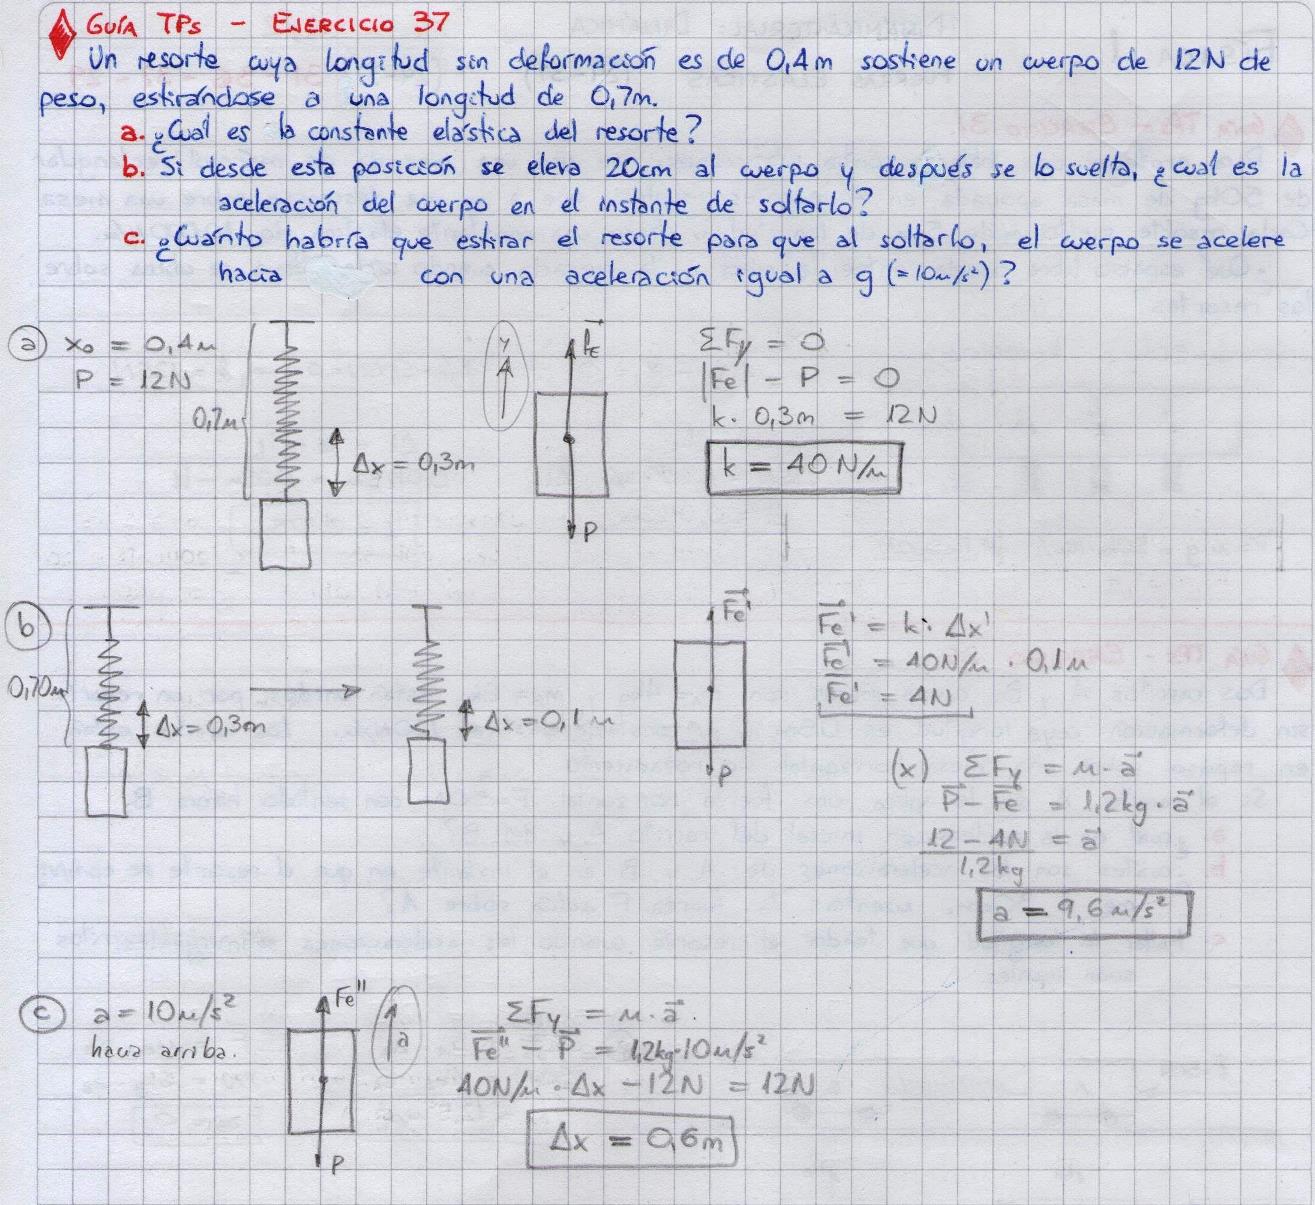 GUÍA TPs - EJERCICIO 37
Un resorte cuya longitud sin deformación es de 0,4m sostiene un cuerpo de 12N de
peso, estirándose a una longitud de 0,7m.
a. ¿Cuál es la constante elástica del resorte?
b. Si desde esta posición se eleva 20cm al cuerpo y después se lo suelta, ¿cual es la
aceleración del cuerpo en el instante de soltarlo?
c. ¿Cuánto habría que estirar el resorte para que al soltarlo, el cuerpo se acelere
hacia con una aceleración igual a g (=10m/s²)?
a
x₀ = 0,4m
P = 12N
0,7m
Δx = 0,3m
y
Fe
P
ΣFy = 0
|Fe| - P = 0
k. 0,3m = 12N
k = 40 N/m
b
0,70m
Δx = 0,3m
Δx = 0,1m
Fe'
P
Fe' = k. Δx'
Fe' = 40N/m . 0,1m
Fe' = 4N
(x) ΣFy = m.a
P - Fe = 1,2kg.a
12 - 4N = a
1,2kg
a = 9,6 m/s²
c
a = 10m/s²
hacia arriba.
Fe''
a
P
ΣFy = m.a.
Fe'' - P = 1,2kg.10m/s²
40N/m . Δx - 12N = 12N
Δx = 0,6m